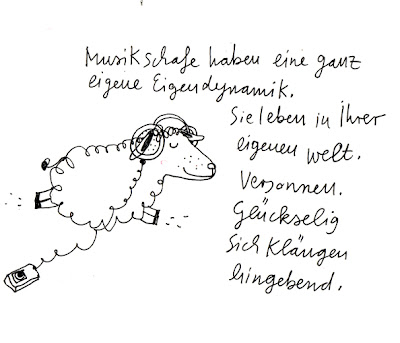 Musikschafe haben eine ganz
eigene Eigendynamik.
Sie leben in Ihrer
eigenen Welt.
Versonnen.
Glückselig
sich Klängen
hingebend.